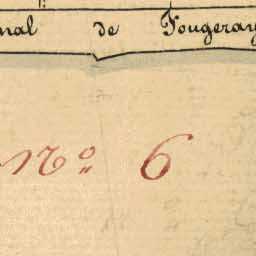 nal de Fougeray
No 6